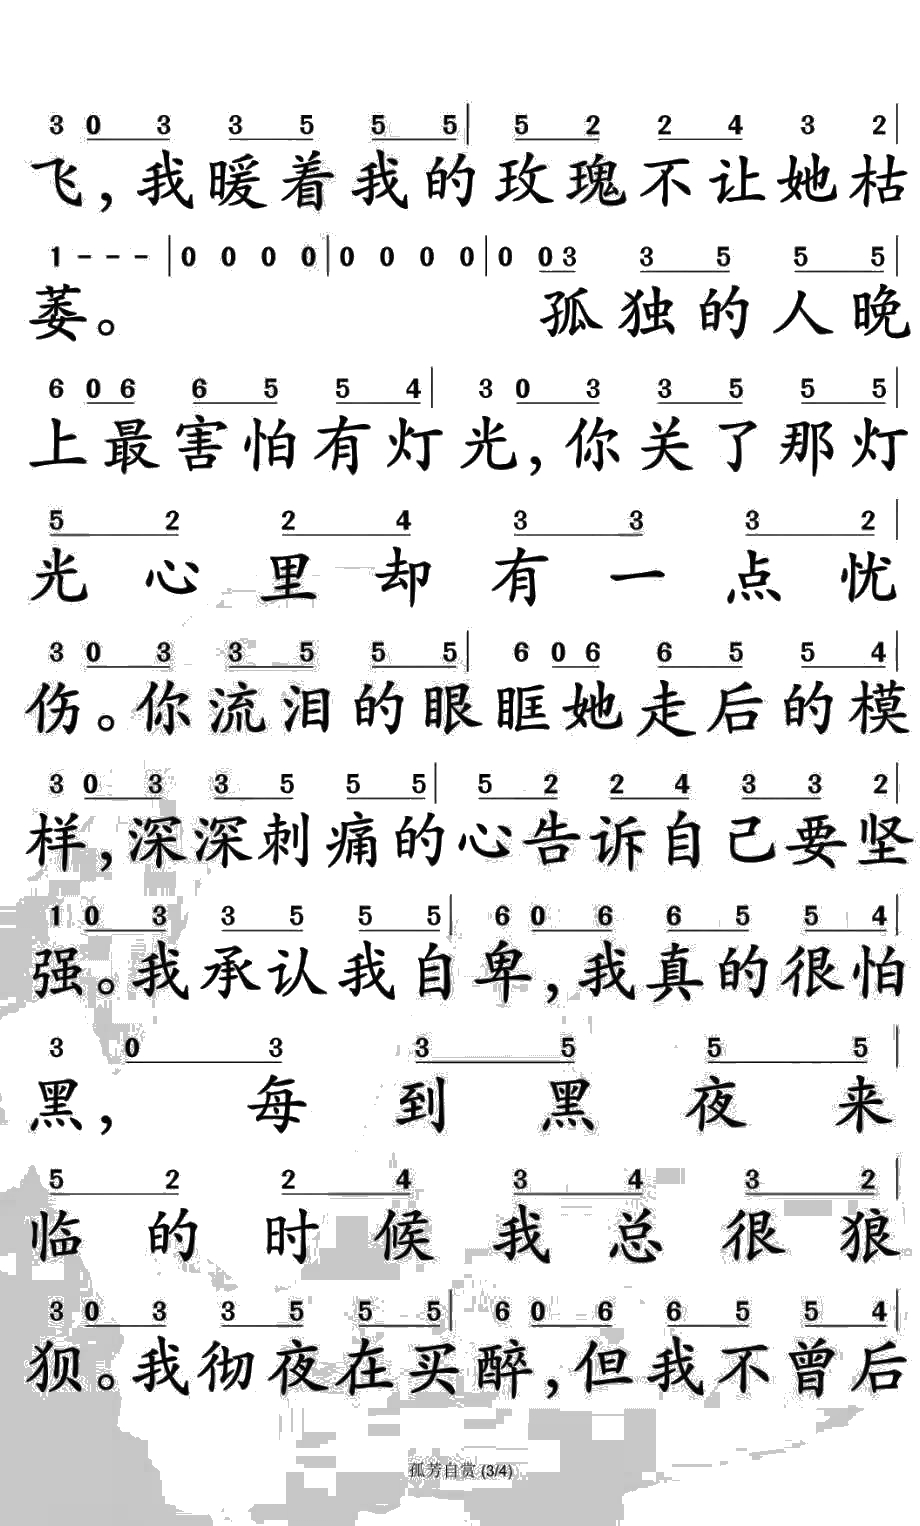 3 0 3 3 5 5 5 | 5 2 2 4 3 2 |
飞，我暖着我的玫瑰不让她枯
1 - - - | 0 0 0 0 | 0 0 0 0 | 0 0 3 3 5 5 5 |
萎。 孤独的人晚
6 0 6 6 5 5 4 | 3 0 3 3 5 5 5 |
上最害怕有灯光，你关了那灯
5 2 2 4 3 3 3 2 |
光心里却有一点忧
3 0 3 3 5 5 5 | 6 0 6 6 5 5 4 |
伤。你流泪的眼眶她走后的模
3 0 3 3 5 5 5 | 5 2 2 4 3 3 2 |
样，深深刺痛的心告诉自己要坚
1 0 3 3 5 5 5 | 6 0 6 6 5 5 4 |
强。我承认我自卑，我真的很怕
3 0 3 3 5 5 5 |
黑，每到黑夜来
5 2 2 4 3 4 3 2 |
临的时候我总很狼
3 0 3 3 5 5 5 | 6 0 6 6 5 5 4 |
狈。我彻夜在买醉，但我不曾后
孤芳自赏 (3/4)